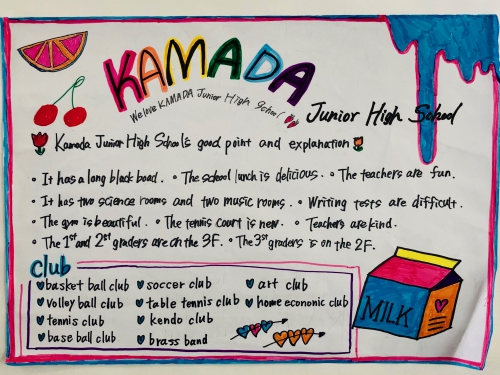 KAMADA
We love KAMADA Junior High School
Junior High School
Kamada Junior High School's good point and explanation
• It has a long black boad. • The school lunch is delicious. • The teachers are fun.
• It has two science rooms and two music rooms. • Writing tests are difficult.
• The gym is beautiful. • The tennis court is new. • Teachers are kind.
• The 1st and 2st graders are on the 3F. • The 3st graders is on the 2F.
Club
basket ball club soccer club art club
volley ball club table tennis club home economic club
tennis club kendo club
base ball club brass band
MILK